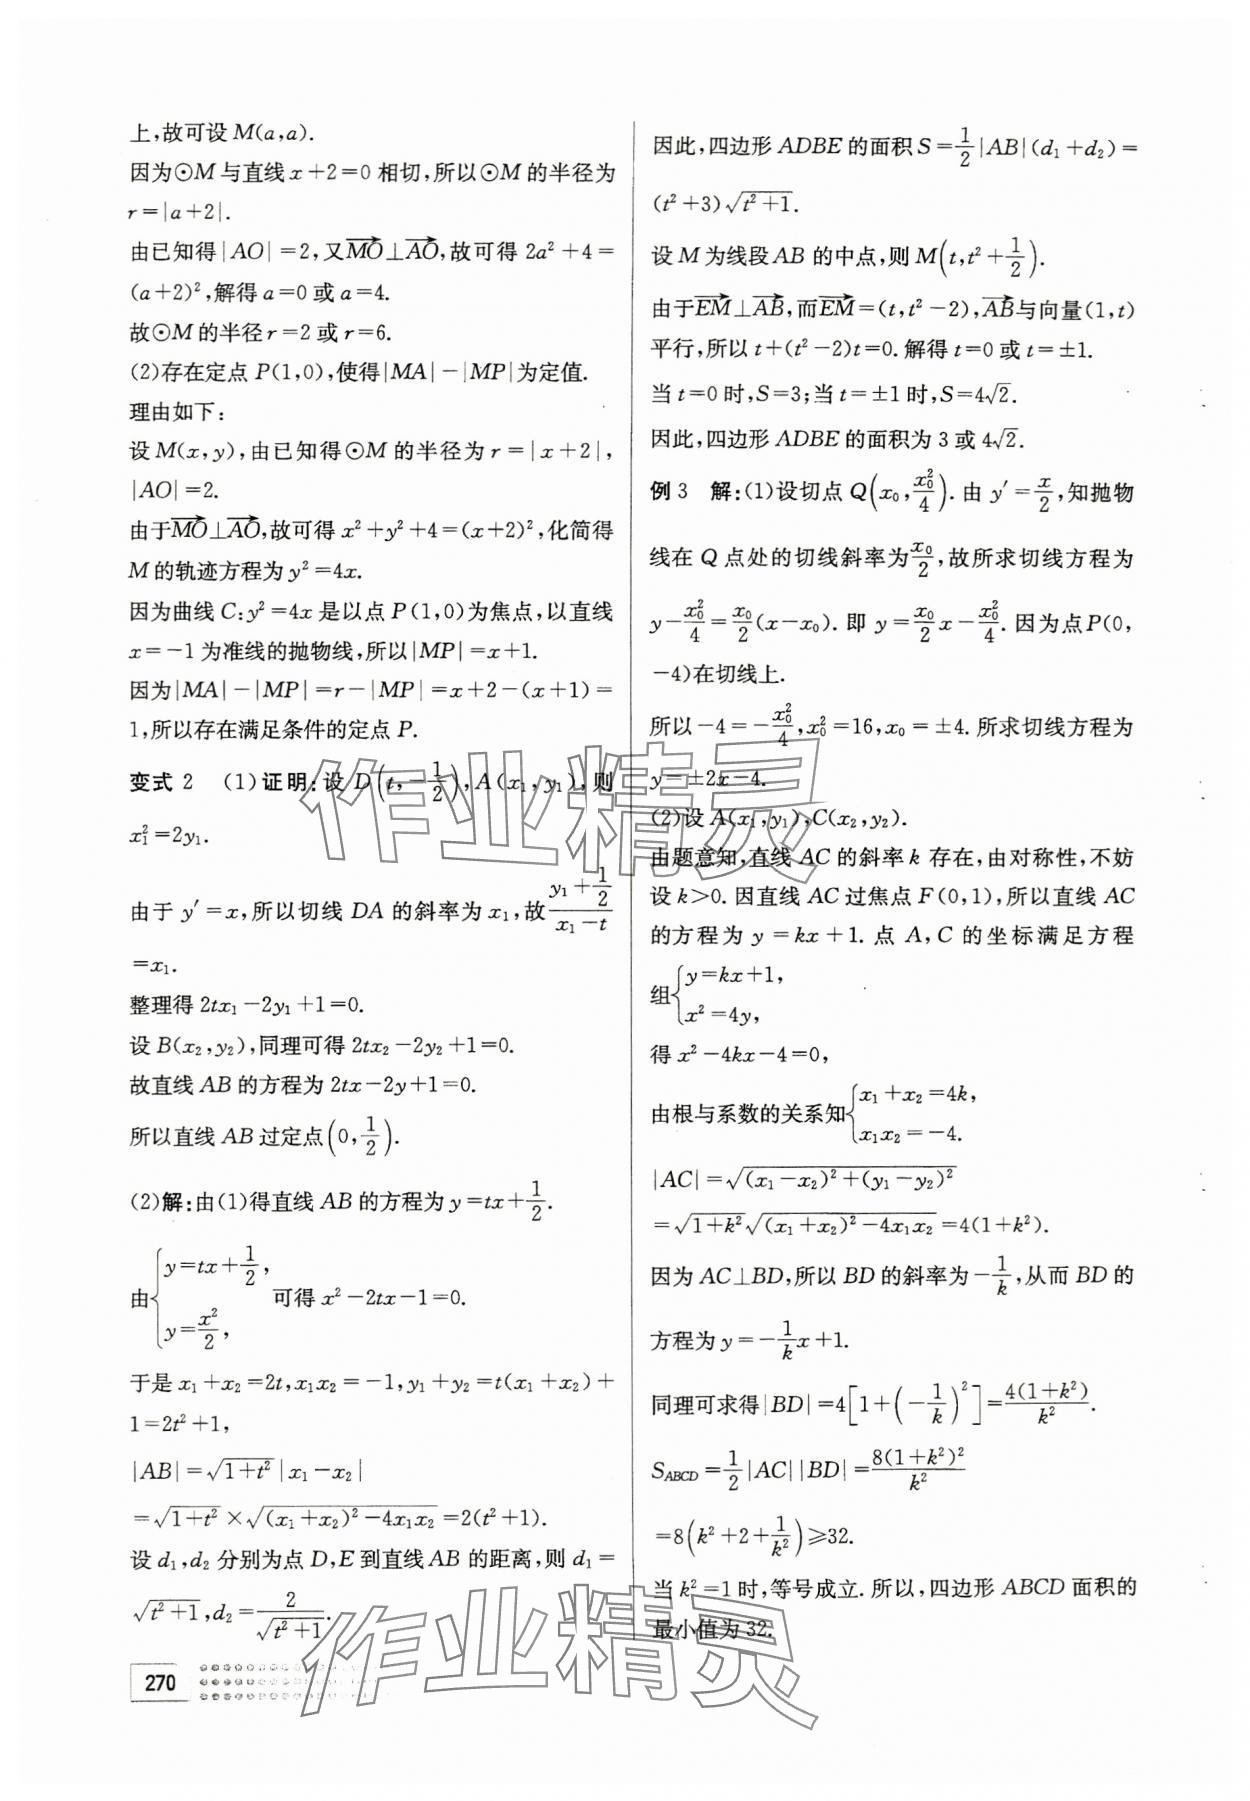 上,故可设 M(a,a).
因为⊙M 与直线 x+2=0 相切,所以⊙M 的半径为
r=|a+2|.
由已知得|AO|=2,又$\overrightarrow{MO}$⊥$\overrightarrow{AO}$,故可得 2a²+4=
(a+2)²,解得 a=0 或 a=4.
故⊙M 的半径 r=2 或 r=6.
(2)存在定点 P(1,0),使得|MA|-|MP|为定值.
理由如下:
设 M(x,y),由已知得⊙M 的半径为 r=|x+2|,
|AO|=2.
由于$\overrightarrow{MO}$⊥$\overrightarrow{AO}$,故可得 x²+y²+4=(x+2)²,化简得
M 的轨迹方程为 y²=4x.
因为曲线 C:y²=4x 是以点 P(1,0)为焦点,以直线
x=-1 为准线的抛物线,所以|MP|=x+1.
因为|MA|-|MP|=r-|MP|=x+2-(x+1)=
1,所以存在满足条件的定点 P.
变式 2 (1)证明:设 $D\left(t,-\frac{1}{2}\right)$,A(x₁,y₁),则
$x_1^2=2y_1$.
由于 y′=x,所以切线 DA 的斜率为 x₁,故$\frac{y_1+\frac{1}{2}}{x_1-t}$
=x₁.
整理得 2tx₁-2y₁+1=0.
设 B(x₂,y₂),同理可得 2tx₂-2y₂+1=0.
故直线 AB 的方程为 2tx-2y+1=0.
所以直线 AB 过定点$\left(0,\frac{1}{2}\right)$.
(2)解:由(1)得直线 AB 的方程为 $y=tx+\frac{1}{2}$.
由$\begin{cases}y=tx+\frac{1}{2},\\y=\frac{x^2}{2},\end{cases}$可得 x²-2tx-1=0.
于是 x₁+x₂=2t,x₁x₂=-1,y₁+y₂=t(x₁+x₂)+
1=2t²+1,
|AB|=$\sqrt{1+t^2}$|x₁-x₂|
=$\sqrt{1+t^2}×\sqrt{(x_1+x_2)^2-4x_1x_2}$=2(t²+1).
设 d₁,d₂ 分别为点 D,E 到直线 AB 的距离,则 d₁=
$\sqrt{t^2+1}$,d₂=$\frac{2}{\sqrt{t^2+1}}$.
270
因此,四边形 ADBE 的面积 S=$\frac{1}{2}$|AB|(d₁+d₂)=
(t²+3)$\sqrt{t^2+1}$.
设 M 为线段 AB 的中点,则 $M\left(t,t^2+\frac{1}{2}\right)$.
由于$\overrightarrow{EM}$⊥$\overrightarrow{AB}$,而$\overrightarrow{EM}$=(t,t²-2),$\overrightarrow{AB}$与向量(1,t)
平行,所以 t+(t²-2)t=0.解得 t=0 或 t=±1.
当 t=0 时,S=3;当 t=±1 时,S=4$\sqrt{2}$.
因此,四边形 ADBE 的面积为 3 或 4$\sqrt{2}$.
例 3 解:(1)设切点 $Q\left(x_0,\frac{x_0^2}{4}\right)$.由 y′=$\frac{x}{2}$,知抛物
线在 Q 点处的切线斜率为$\frac{x_0}{2}$,故所求切线方程为
$y-\frac{x_0^2}{4}=\frac{x_0}{2}(x-x_0)$.即 $y=\frac{x_0}{2}x-\frac{x_0^2}{4}$.因为点P(0,
-4)在切线上.
所以-4=-$\frac{x_0^2}{4}$,$x_0^2$=16,x₀=±4.所求切线方程为
y=±2x-4.
(2)设 A(x₁,y₁),C(x₂,y₂).
由题意知,直线 AC 的斜率 k 存在,由对称性,不妨
设 k>0.因直线 AC 过焦点 F(0,1),所以直线 AC
的方程为 y=kx+1.点 A,C 的坐标满足方程
组$\begin{cases}y=kx+1,\\x^2=4y,\end{cases}$
得 x²-4kx-4=0,
由根与系数的关系知$\begin{cases}x_1+x_2=4k,\\x_1x_2=-4.\end{cases}$
|AC|=$\sqrt{(x_1-x_2)^2+(y_1-y_2)^2}$
=$\sqrt{1+k^2}\sqrt{(x_1+x_2)^2-4x_1x_2}$=4(1+k²).
因为 AC⊥BD,所以 BD 的斜率为-$\frac{1}{k}$,从而 BD 的
方程为 y=-$\frac{1}{k}$x+1.
同理可求得|BD|=$4\left[1+\left(-\frac{1}{k}\right)^2\right]=\frac{4(1+k^2)}{k^2}$.
$S_{ABCD}=\frac{1}{2}|AC||BD|=\frac{8(1+k^2)^2}{k^2}$
=$8\left(k^2+2+\frac{1}{k^2}\right)$≥32.
当 k²=1 时,等号成立.所以,四边形 ABCD 面积的
最小值为 32.
作业精灵
作业精灵